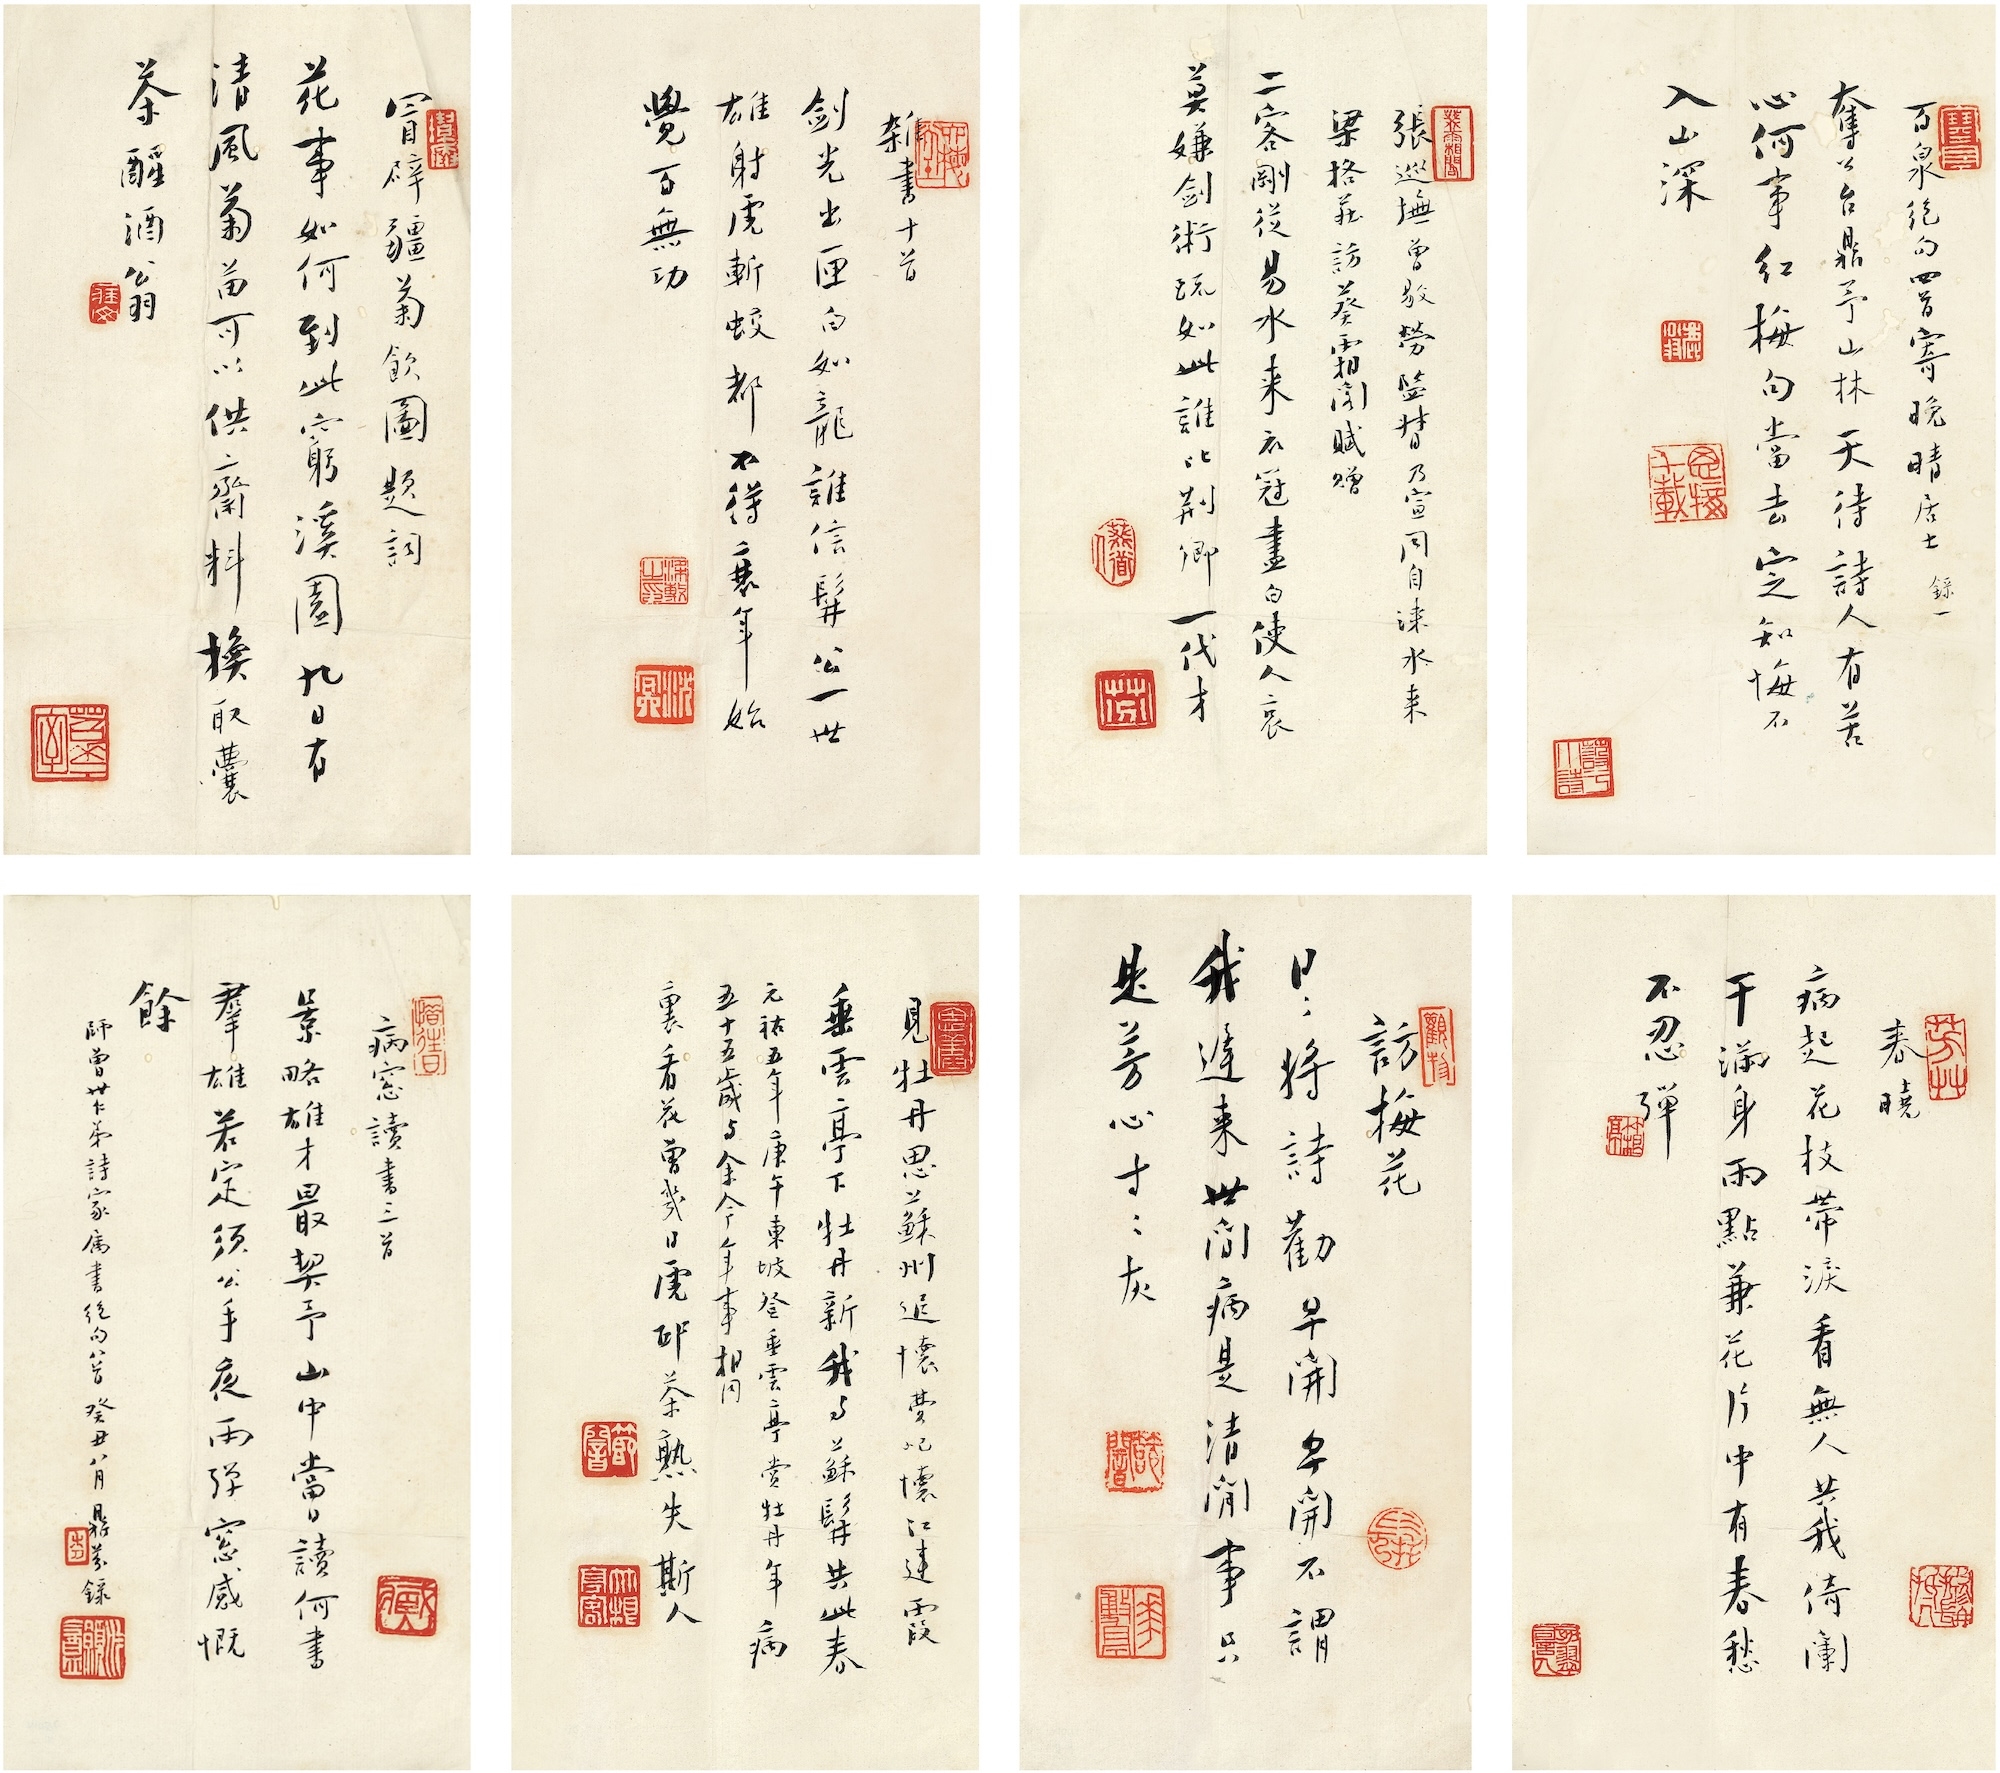 百泉絕句四首寄晚晴居士 錄一
奪公台鼎予山林天待詩人有苦
心何事紅梅句當去定知悔不
入山深
張巡撫曾敭勞監督乃宣同自淶水來
梁格莊訪葵霜閣賦贈
二客剛從易水來衣冠盡白使人哀
莫嫌劍術疏如此誰比荊卿一代才
雜書十首
劍光出匣白如龍誰信髯公一世
雄射虎斬蛟都不得衰年始
覺百無功
冒辟疆菊飲圖題詞
花事如何到此窮溪園九日有
清風菊苗可以供齋料換取囊
茶醒酒翁
春曉
病起花枝帶淚看無人共我倚闌
干滿身雨點兼花片中有春愁
不忍彈
訪梅花
日日將詩勸早開早開不謂
我遲來世間病是清閒事只
是芳心寸寸灰
見牡丹思蘇州追懷費屺懷江建霞
垂雲亭下牡丹新我與蘇髯共此春
元祐五年庚午東坡登垂雲亭賞牡丹年
五十五歲與余今年事相同
病裏看花曾幾日虎邱茶熟失斯人
病窓讀書三首
景略雄才最契予山中當日讀何書
羣雄若定須公手夜雨彈窓感慨
餘
師曾世仁弟詩家屬書絕句八首癸丑八月鼎芬錄